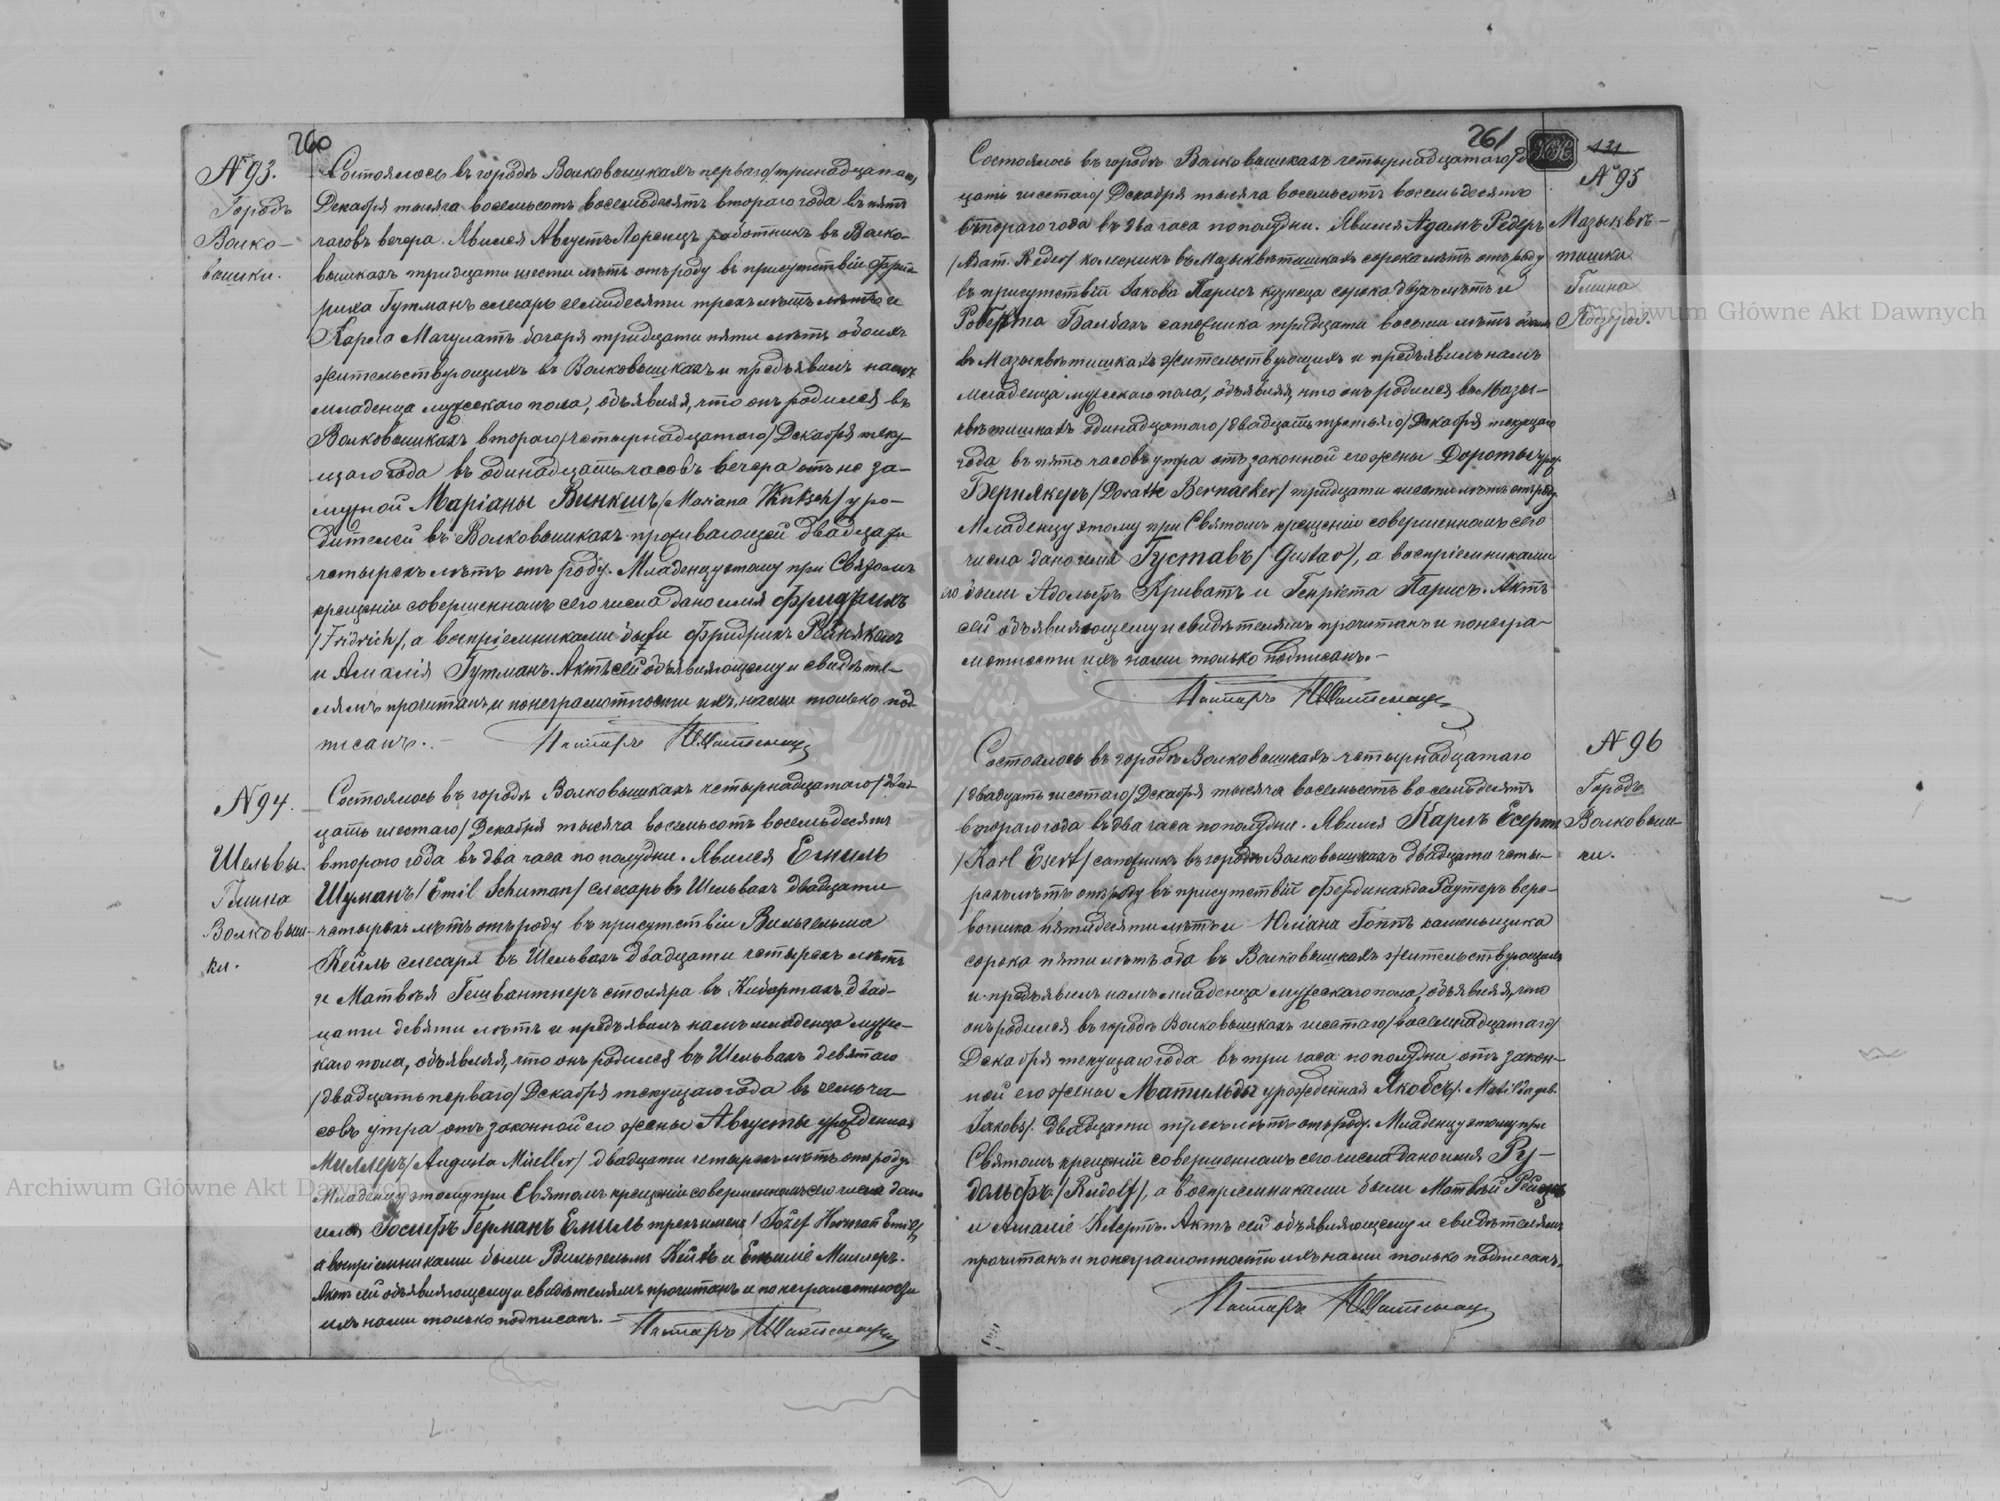 260
№ 93.
Городъ
Волко-
вышки.
Состоялось въ городѣ Волковышкахъ перваго/тринадцатаго/
Декабря тысяча восемьсотъ восемьдесятъ втораго года въ пять
часовъ вечера. Явился Августъ Лоренцъ работникъ въ Волко-
вышкахъ тридцати шести лѣтъ отъ роду въ присутствіи Фрид-
риха Гутманъ слесарь семидесяти трехъ лѣтъ и
Карла Магулатъ бочаря тридцати пяти лѣтъ обоихъ
жительствующихъ въ Волковышкахъ и предъявилъ намъ
младенца мужескаго пола, объявляя, что онъ родился въ
Волковышкахъ втораго/четырнадцатаго/Декабря теку-
щаго года въ одинадцать часовъ вечера отъ не за-
мужной Маріаны Винкшъ/Mariana Winksch/ у ро-
дителей въ Волковышкахъ проживающей двадцати
четырехъ лѣтъ отъ роду. Младенцу этому при Святомъ
крещеніи совершенномъ сего числа дано имя Фридрихъ
/Fridrich/, а воспріемниками были Фридрихъ Рейнякель
и Амалія Гутманъ. Актъ сей объявляющему и свидѣте-
лямъ прочитанъ, и по неграмотности ихъ, нами только под-
писанъ. - Пасторъ
№ 94.
Шельвы.
Гмина
Волковыш-
ки.
Состоялось въ городѣ Волковышкахъ четырнадцатаго/двад-
цать шестаго/Декабря тысяча восемьсотъ восемьдесятъ
второго года въ два часа по полудни. Явился Емиль
Шуманъ/Emil Schuman/ слесарь въ Шельвахъ двадцати
четырехъ лѣтъ отъ роду въ присутствіи Вильгельма
Кейль слесаря въ Шельвахъ двадцати четырехъ лѣтъ
и Матвѣя Гешвантнеръ столяра въ Кибартахъ двад-
цати девяти лѣтъ и предъявилъ намъ младенца муже-
каго пола, объявляя, что онъ родился въ Шельвахъ девятаго
/двадцать перваго/Декабря текущаго года въ семь ча-
совъ утра отъ законной его жены Августы урожденная
Миллеръ/Augusta Müeller/ двадцати четырехъ лѣтъ отъ роду.
Младенцу этому при Святомъ крещеніи совершенномъ сего числа дано
имя Іосифъ Германъ Емиль трехъ именъ/Jozef Herman Emil/
а воспріемниками были Вильгельмъ Кейль и Емиліе Миллеръ.
Актъ сей объявляющему и свидѣтелямъ прочитанъ и по неграмотности
ихъ нами только подписанъ. - Пасторъ
261
131
№ 95
Мазыквѣ-
тишки
Гмина
Состоялось въ городѣ Волковышкахъ четырнадцатаго/двад-
цать шестаго/Декабря тысяча восемьсотъ восемьдесятъ
втораго года въ два часа по полудни. Явился Адамъ Редеръ
/Adam Reder/ колесникъ въ Мазыквѣтишкахъ сорока лѣтъ отъ роду
въ присутствіи Іакова Парисъ кузнеца сорока двухъ лѣтъ и
Роберта Балбахъ сапожника тридцати восьми лѣтъ обоихъ
въ Мазыквѣтишкахъ жительствующихъ и предъявилъ намъ
младенца мужескаго пола, объявляя, что онъ родился въ Мазы-
квѣтишкахъ одинадцатаго/двадцать третьяго/Декабря текущаго
года въ пять часовъ утра отъ законной его жены Дороты урож.
Бернякеръ/Dorathe Bernaeker/ тридцати шести лѣтъ отъ роду.
Младенцу этому при Святомъ крещеніи совершенномъ сего
числа дано имя Густавъ/Gustav/, а воспріемниками
его были Адольфъ Криватъ и Генріета Парисъ. Актъ
сей объявляющему и свидѣтелямъ прочитанъ и по негра-
мотности ихъ нами только подписанъ. -
Пасторъ
№ 96
Городъ
Волковыш-
ки.
Состоялось въ городѣ Волковышкахъ четырнадцатаго
/двадцать шестаго/Декабря тысяча восемьсотъ восемьдесятъ
втораго года въ два часа по полудни. Явился Карлъ Есертъ
/Karl Esert/ сапожникъ въ городѣ Волковышкахъ двадцати четы-
рехъ лѣтъ отъ роду въ присутствіи Фердинанда Раутеръ вере-
вочника пятидесяти лѣтъ и Юліана Гоппъ каменьщика
сорока пяти лѣтъ оба въ Волковышкахъ жительствующихъ
и предъявилъ намъ младенца мужескаго пола, объявляя, что
онъ родился въ городѣ Волковышкахъ шестаго/восемнадцатаго/
Декабря текущаго года въ три часа по полудни отъ закон-
ной его жены Матильды урожденная Якобсъ/Matilda geb.
Jakobs/. двадцати трехъ лѣтъ отъ роду. Младенцу этому при
Святомъ крещеніи совершенномъ сего числа дано имя Ру-
дольфъ./Rudolf/, а воспріемниками были Матвѣй
и Амаліе. Актъ сей объявляющему и свидѣтелямъ
прочитанъ и по неграмотности ихъ нами только подписанъ.
Пасторъ
Archiwum Główne Akt Dawnych
Archiwum Główne Akt Dawnych